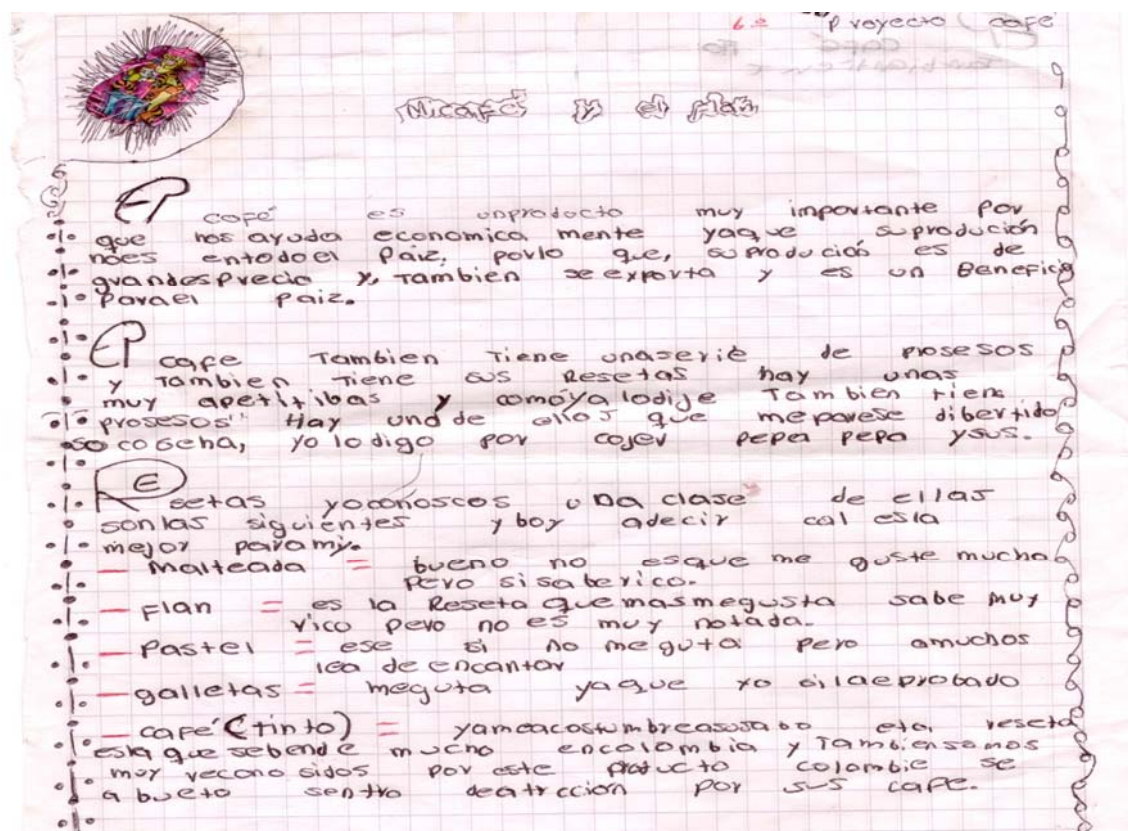 6º Proyecto café
Mi café y el flan
El café es unproducto muy importante Por
que nos ayuda economica mente yaque suprodución
noes entodoel Paiz, porlo que, suprodución es de
grandesPrecio y, Tambien seexporta y es un Beneficio
Parael Paiz.
El cafe Tambien Tiene unaserie de prosesos
y Tambien Tiene sus Resetas hay unas
muy apetitibas y comoya lodije Tambien Tiene
prosesos" Hay unode ellos que meparese dibertido
so cosecha, yo lo digo por cojer pepa pepa ysus.
RE
setas yoconoscos una clase de ellas
sonlas siguientes yboy adecir cal esla
mejor paramy.
— Malteada = bueno no esque me guste mucha
Pero si saberico.
— Flan = es la Reseta quemasmegusta sabe muy
rico pero no es muy notada.
— Pastel = ese si no meguta pero amuchos
lea de encantar
— galletas = meguta yaque yo silaeprobado
— café (tinto) = yameacostumbreasusabo eta reseta
esla que sebende mucho encolombia y Tambiensomos
muy recono sidos por este producto colombie se
a bueto sentro deatrccion por sus cafe.